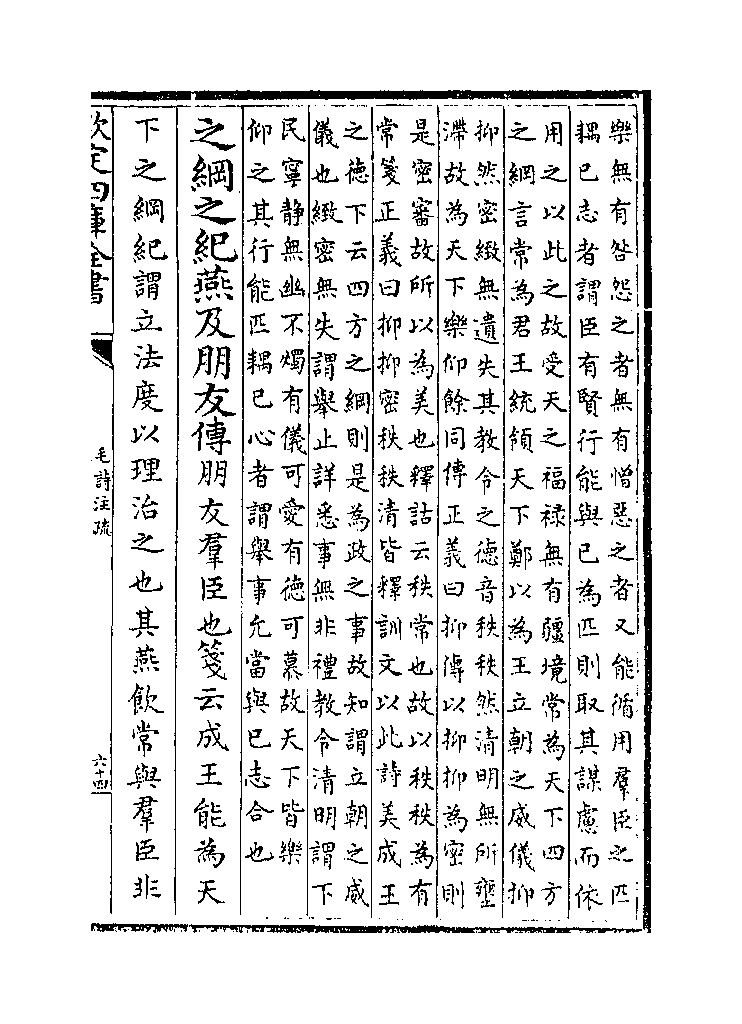 樂無有咎怨之者無有憎惡之者又能循用羣臣之匹
耦已志者謂臣有賢行能與已為匹則取其謀慮而依
用之以此之故受天之福祿無有疆境常為天下四方
之綱言常為君王統領天下鄭以為王立朝之威儀抑
抑然密緻無遺失其教令之德音秩秩然清明無所壅
滯故為天下樂仰餘同傳正義曰抑傳以抑抑為密則
是密審故所以為美也釋詁云秩常也故以秩秩為有
常箋正義曰抑抑密秩秩清皆釋訓文以此詩美成王
之德下云四方之綱則是為政之事故知謂立朝之威
儀也緻密無失謂舉止詳悉事無非禮教令清明謂下
民寧静無幽不燭有儀可愛有德可慕故天下皆樂
仰之其行能匹耦已心者謂舉事允當與已志合也
之綱之紀燕及朋友傳朋友羣臣也箋云成王能為天
下之綱紀謂立法度以理治之也其燕飲常與羣臣非
欽定四庫全書
毛詩注疏
六十四